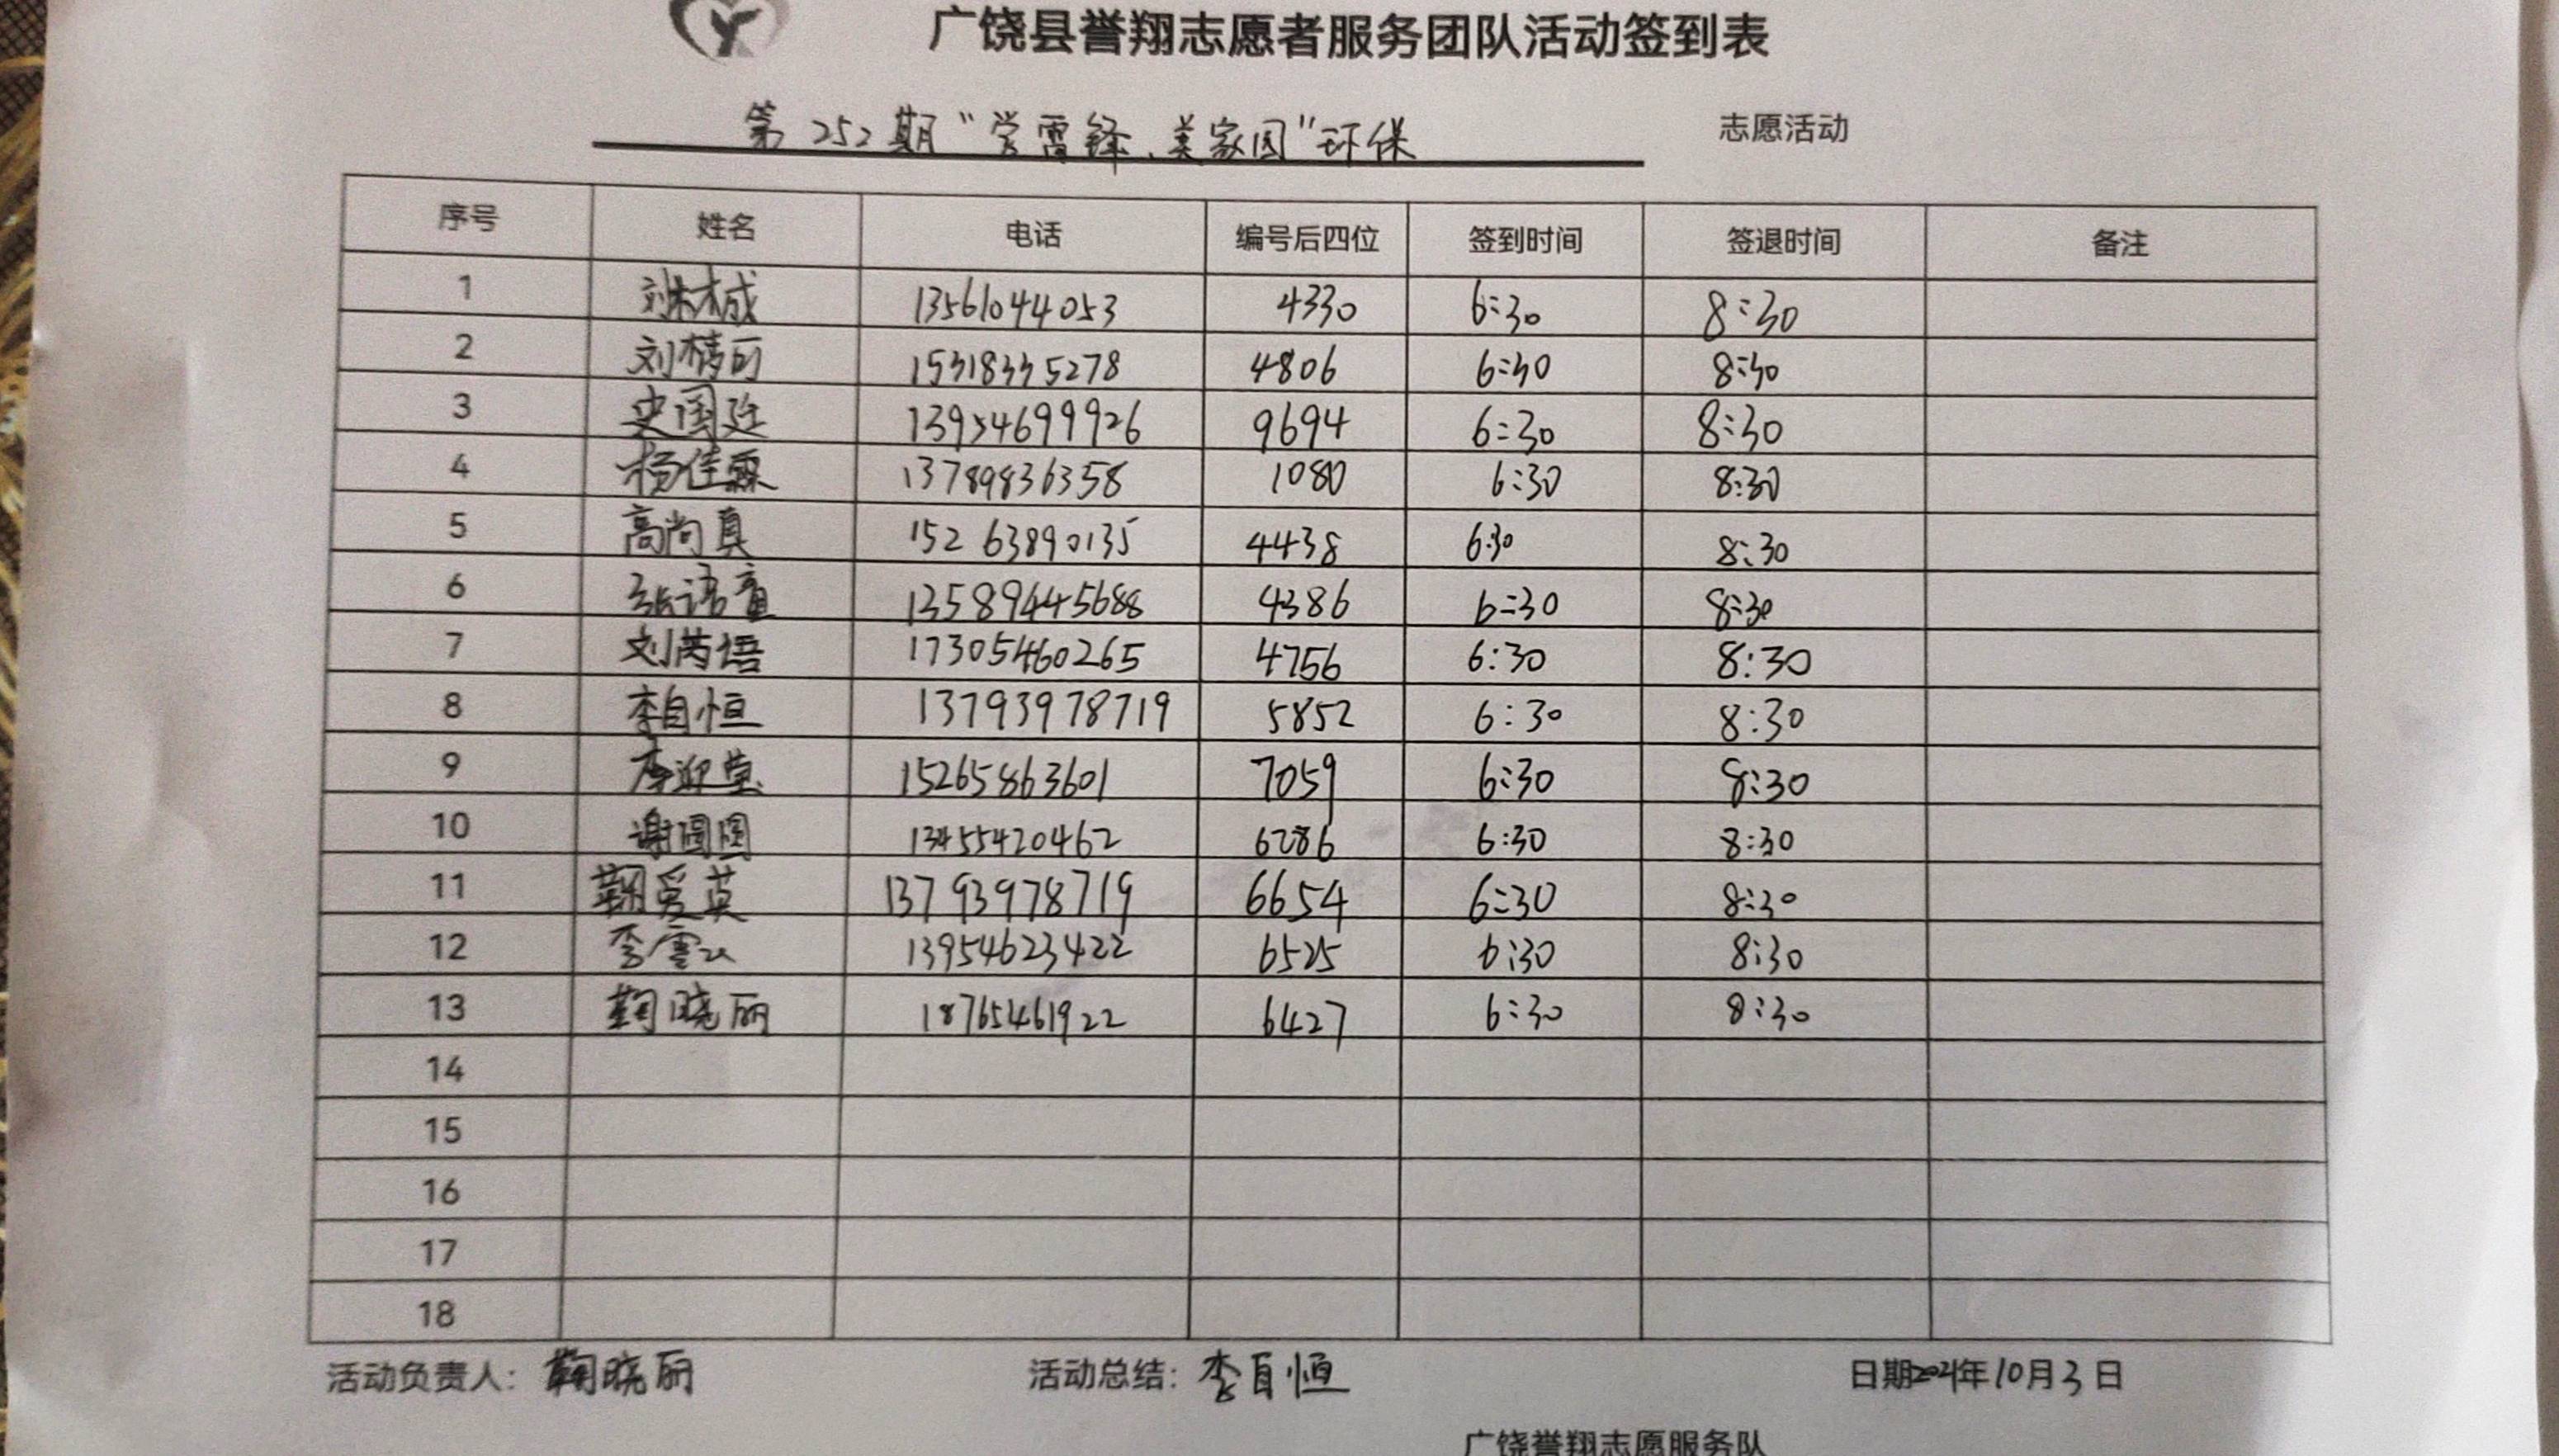 广饶县誉翔志愿者服务团队活动签到表
第252期“学雷锋、美家园”环保 志愿活动
序号 姓名 电话 编号后四位 签到时间 签退时间 备注
1 13561044053 4330 6:30 8:30
2 15318335278 4806 6:30 8:30
3 史国廷 13954699926 9694 6:30 8:30
4 杨佳霖 13789836358 1080 6:30 8:30
5 高尚真 15263890135 4438 6:30 8:30
6 张语童 13589445688 4386 6:30 8:30
7 刘芮语 17305460265 4756 6:30 8:30
8 李自恒 13793978719 5852 6:30 8:30
9 15265863601 7059 6:30 8:30
10 谢圆圆 13455420462 6286 6:30 8:30
11 鞠爱英 13793978719 6654 6:30 8:30
12 13954623422 6525 6:30 8:30
13 鞠晓丽 18765461922 6427 6:30 8:30
14
15
16
17
18
活动负责人：鞠晓丽 活动总结：李自恒 日期2021年10月3日
广饶誉翔志愿服务队